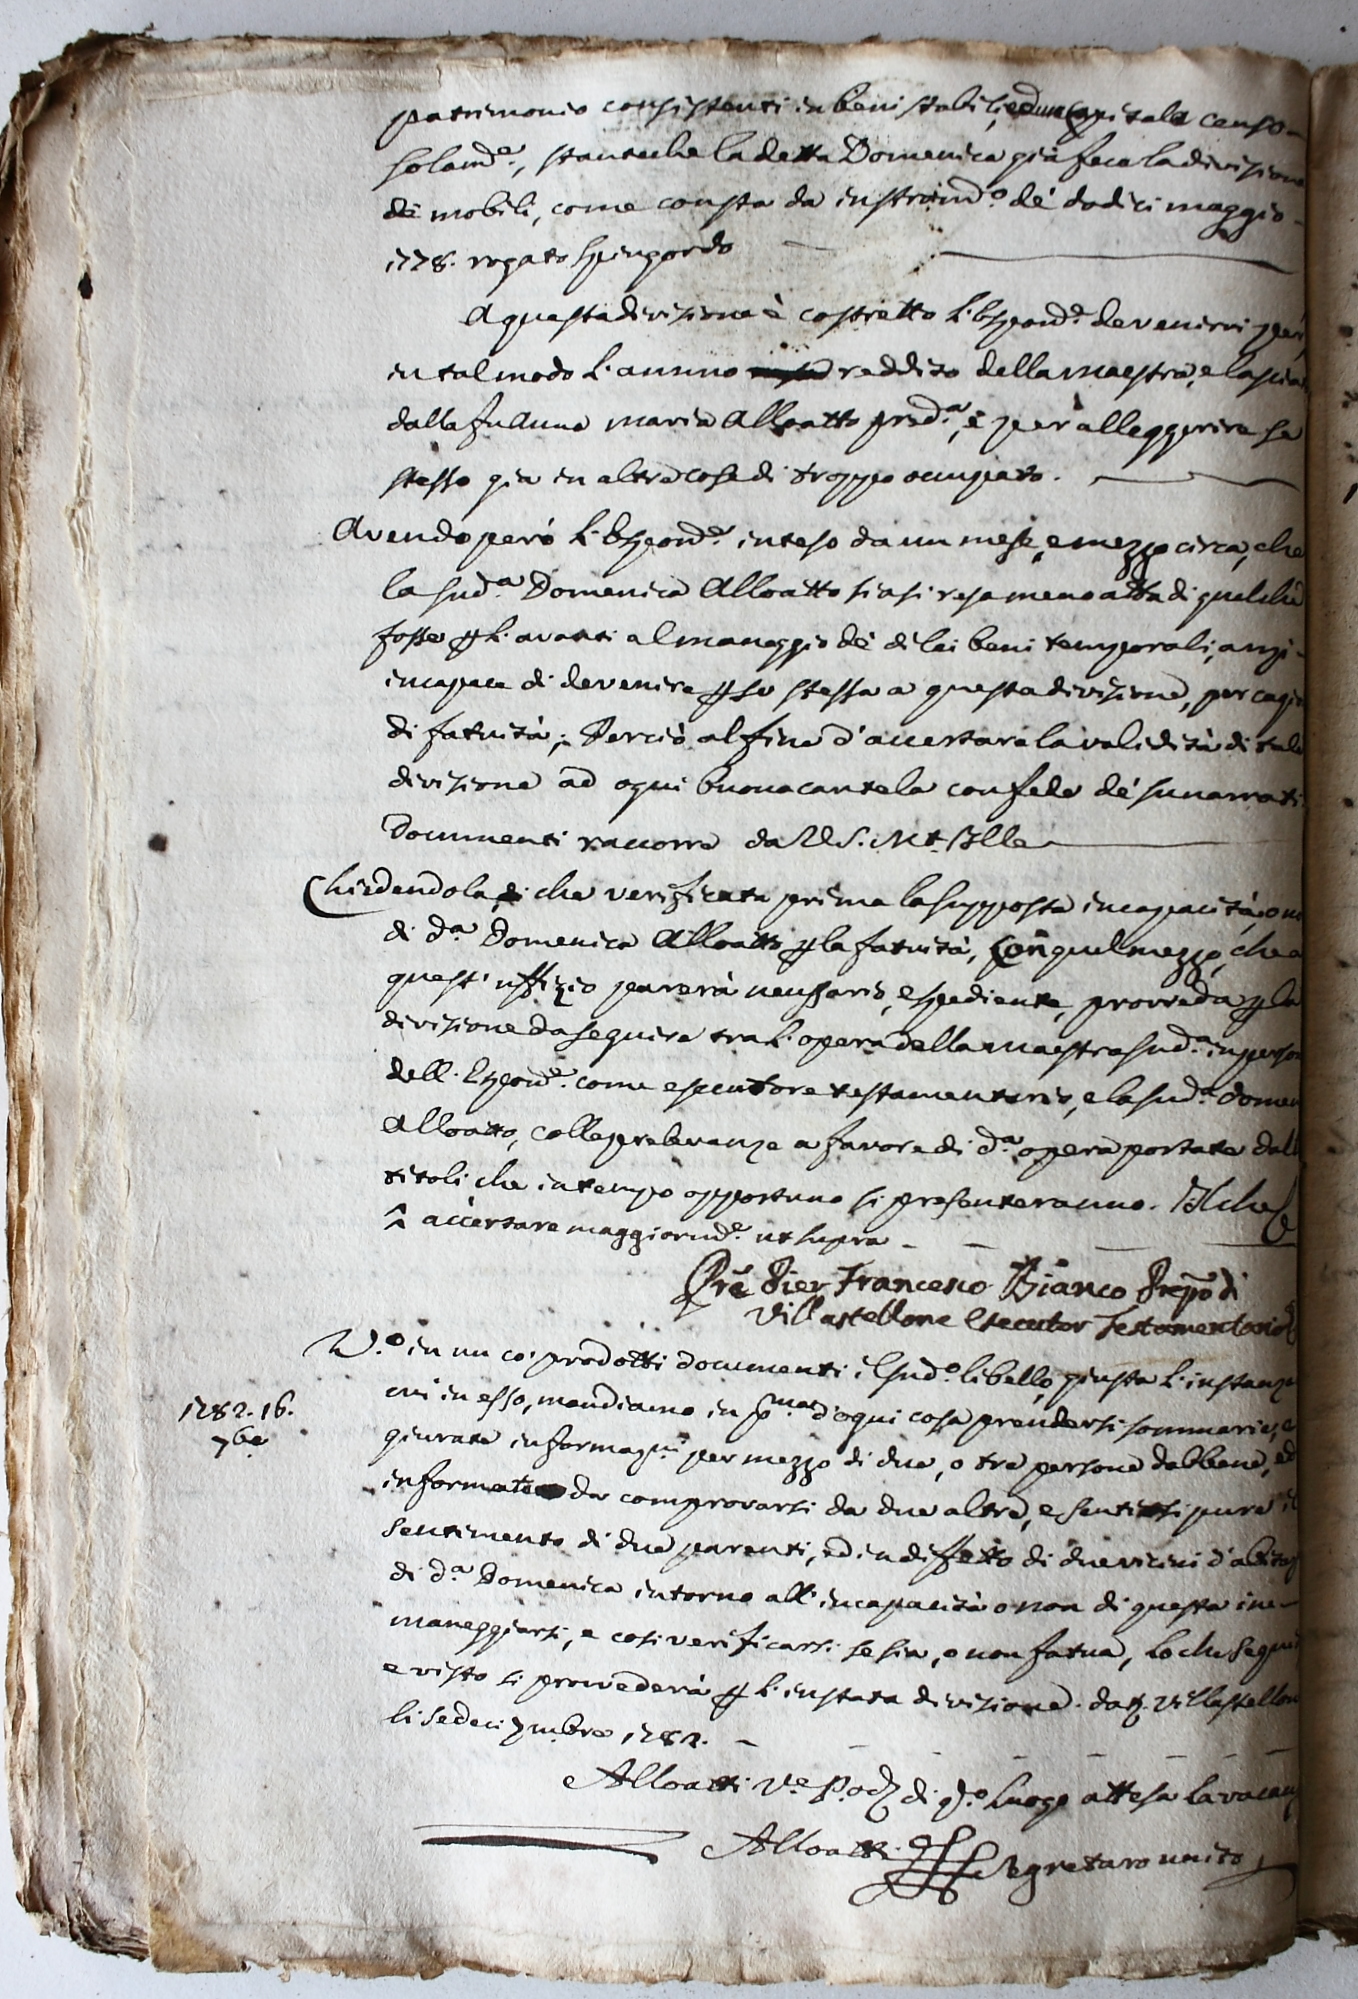 patrimonio consistenti in beni stabili, ed un Capitale censo
solam.e, stanteche la detta Domenica già fece la divisione
de mobili, come consta da instrom.o de' dodici maggio
1778. rogato Spengardo
A questa divisione è costretto L'Espond.e devenirvi per
in tal modo l'annuo reddito della maestra, e lascia
dalla fu Anna Maria Alloatto pred.a, e per alleggerire se
stesso già in altre cose di troppo occupato.
Avendo però L'Espond.e inteso da un mese, e mezzo circa, che
la sud.a Domenica Alloatto siasi resa meno atta di quelche
fosse per l'avanti al maneggio de' di lei beni temporali, anzi
incapace di devenire per se stessa a questa divisione, per cagio
di fatuità; Perciò al fine d'accertare la validità di tale
divisione ad ogni buona cautela con fede de' sunarrati
Documenti raccorre da V.S. Mt. Ille
Chiedendola, che verificata prima la supposta incapacità, o no
di d.a Domenica Alloatto per la fatuità, con quel mezzo, che a
quest'uffizio parerà necessario, e spediente, provveda per la
divisione da seguire tra L'opera della maestra sud.a in person
dell'Espond.e come esecutore testamentario, e la sud.a Domen
Alloatto, colle prelevanze a favore di d.a opera portate dalli
titoli che in tempo opportuno si presenteranno. Il che
accertare maggiorm.e ut supra
Prē Pier Francesco Bianco Prepo di
Villastellone Esecutor Testamentario
V.o in un co' prodotti documenti il sud.o libello, giusta L'instanza
ivi in esso, mandiamo in p.ma d'ogni cosa prendersi sommarie, e
1782. 16.
7be
giurate informazni per mezzo di due, o tre persone dabbene, ed
informate da comprovarsi da due altre, e sentirsi pure il
sentimento di due parenti, ed in diffetto di due vicini d'abitaz
di d.a Domenica intorno all'incapacità o non di questa in
maneggiarsi, e così verificarsi se sia, o non fatua, Lo che segui
e visto si provvederà per L'instata divisione. dat. Villastellon
li sedeci 7mbre 1782.
Alloatti V.e P.od di q.o Luogo attesa la vacan
Alloatti Segretaro unito